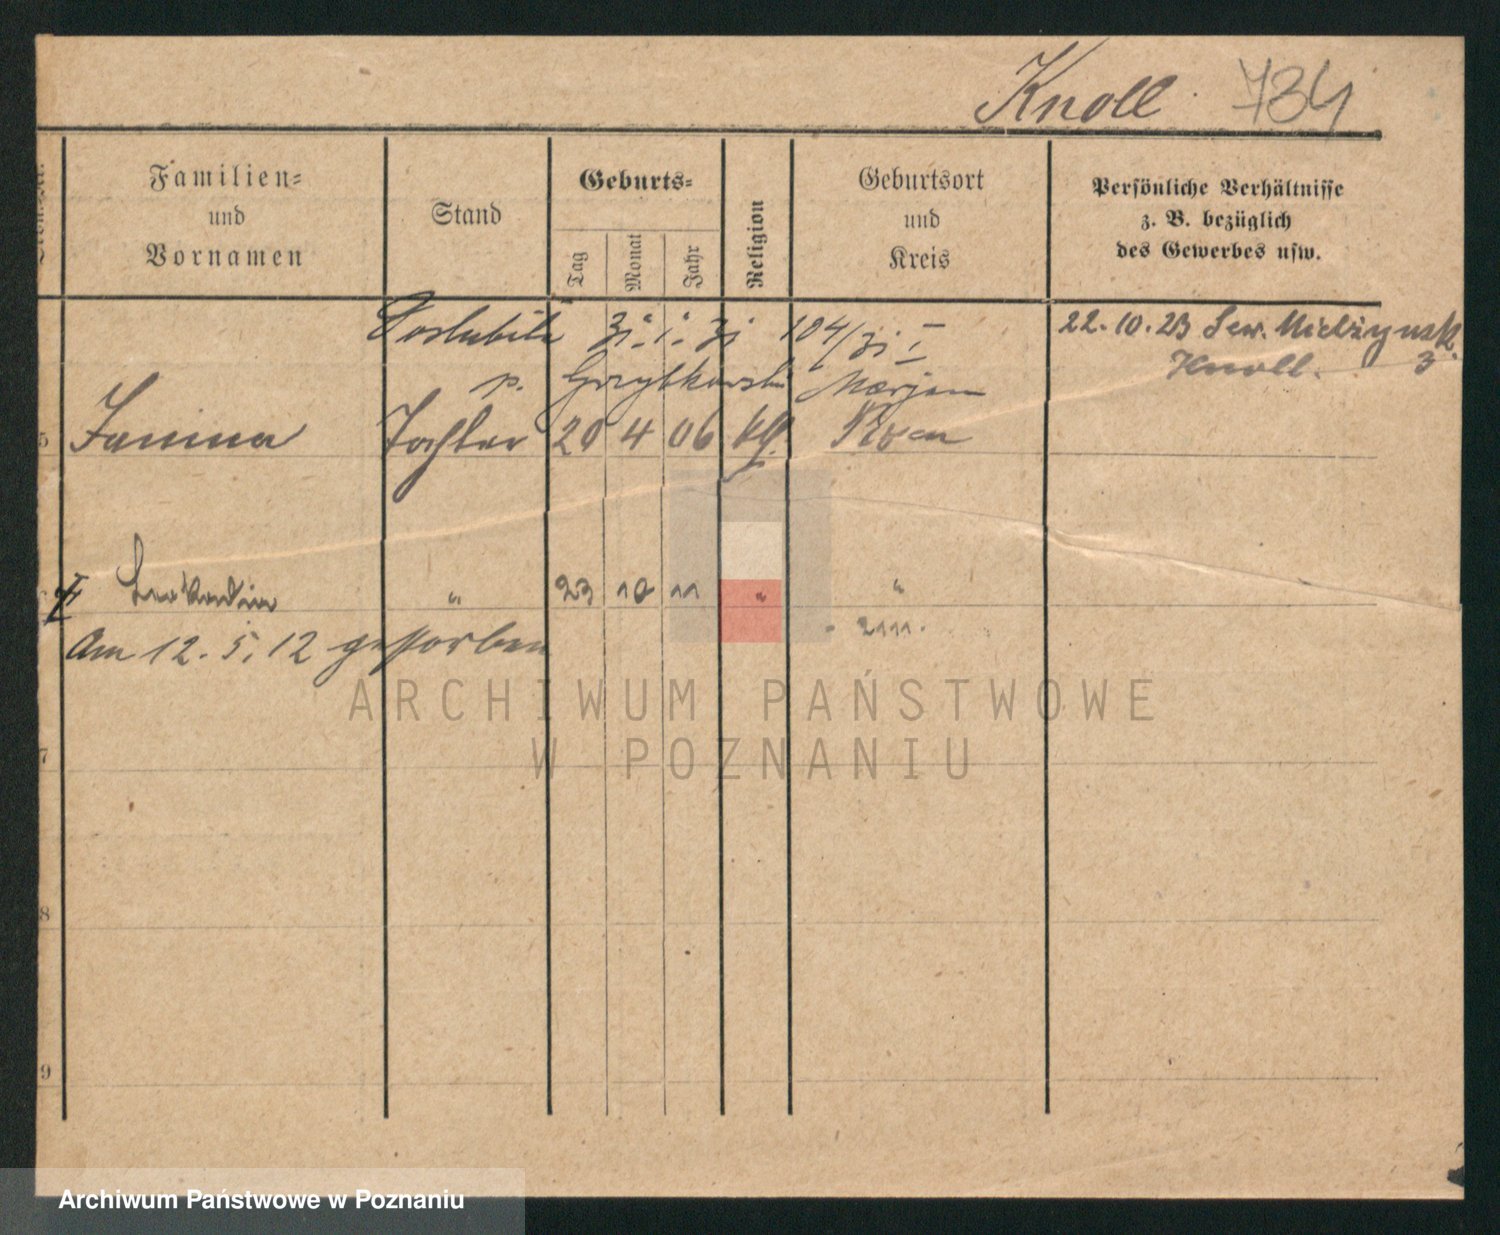 Knoll 734
Familien=
und
Vornamen
Stand
Geburts=
Tag
Monat
Jahr
Religion
Geburtsort
und
Kreis
Persönliche Verhältnisse
z. B. bezüglich
des Gewerbes usw.
Poslubiła 31. 1. 31 104/31 I
22.10.23 Sew. Mielżynsk. 3
Knoll.
p. Grzybkowski Marjan
5 Janina Tochter 20 4 06 kth. Posen
Leokadia " 23 10 11 " "
2111.
Am 12. 5. 12 gestorben
7
8
9
ARCHIWUM PAŃSTWOWE
W POZNANIU
Archiwum Państwowe w Poznaniu